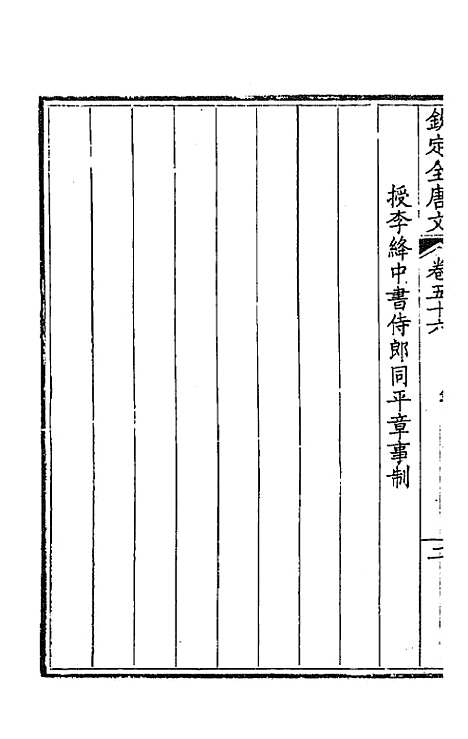 欽定全唐文 卷五十六 二
授李絳中書侍郎同平章事制